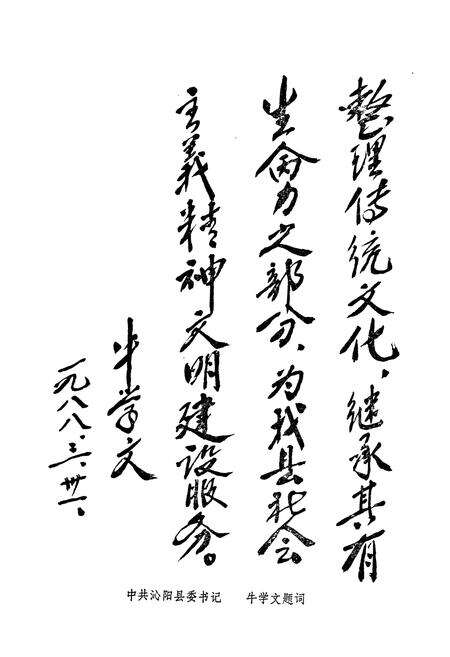 整理传统文化，继承其有
生命力之部分、为我县社会
主义精神文明建设服务。
牛学文
一九八八、三、卅一、
中共沁阳县委书记 牛学文题词